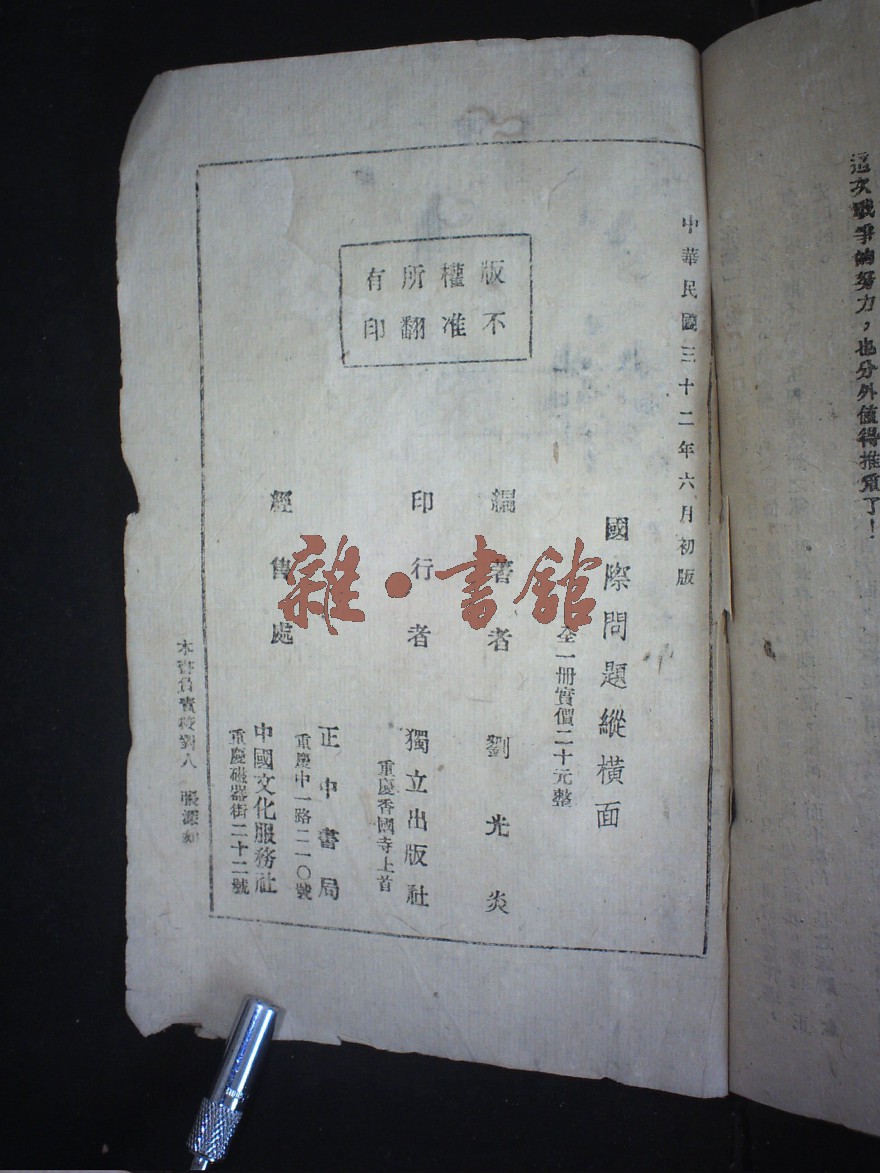 這次戰爭的努力，也分外值得推重了！
中華民國三十二年六月初版
國際問題縱橫面
全一冊實價二十元整
編著者 劉光炎
印行者 獨立出版社
重慶香國寺上首
經售處 正中書局
重慶中一路二一〇號
中國文化服務社
重慶磁器街二十二號
版權所有
不准翻印
本書負責校對人 張深
雜·書館